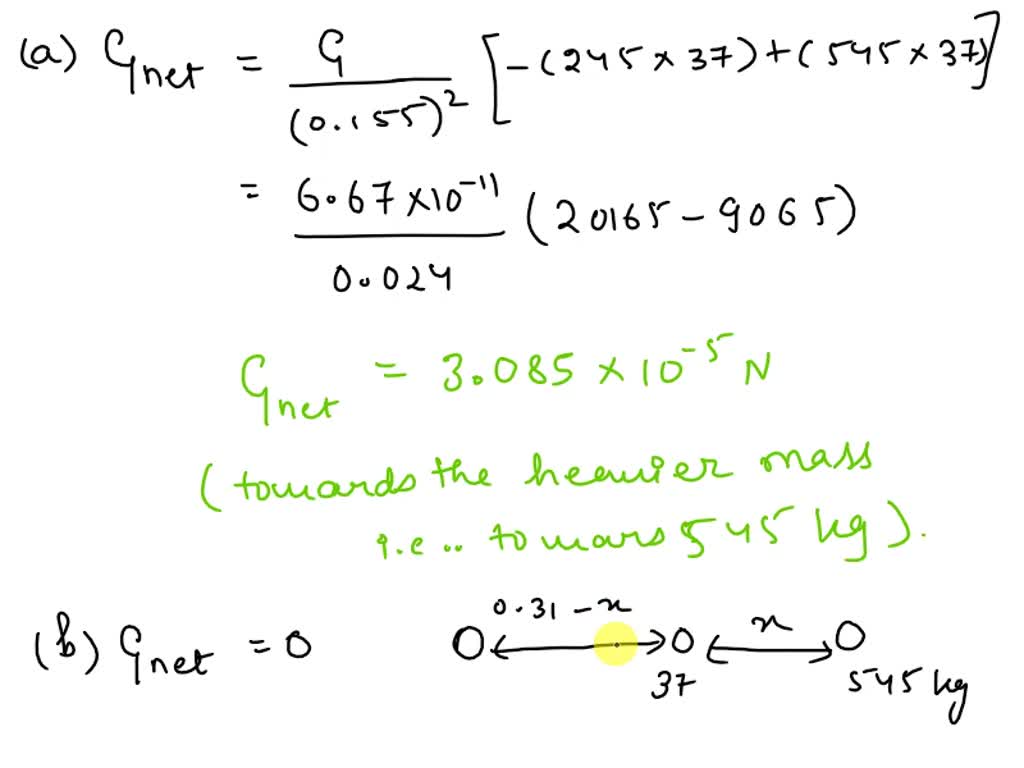 (a) Gnet = G / (0.155)² [-(245 × 37) + (545 × 37)]
= 6.67 × 10⁻¹¹ / 0.024 (20165 - 9065)
Gnet = 3.085 × 10⁻⁵ N
(towards the heavier mass
i.e.. to mars 545 kg).
(b) Gnet = 0
0.31 - x
x
37
545 kg